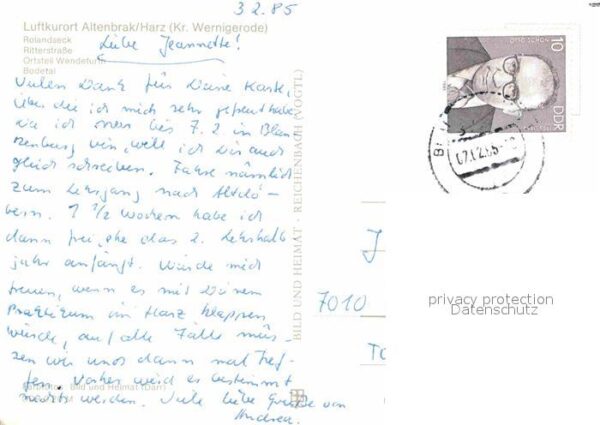 3.2.85
Luftkurort Altenbrak/Harz (Kr. Wernigerode)
Rolandseck
Ritterstraße
Ortsteil Wendefurth
Bodetal
Liebe Jeannette!
Vielen Dank für Deine Karte,
über die ich mich sehr gefreut habe.
Da ich nur bis 7.2. in Blan-
kenburg bin, will ich Dir auch
gleich schreiben. Fahre nämlich
zum Lehrgang nach
1 1/2 Wochen habe ich
dann frei, ehe das 2. Lehrhalb-
jahr anfängt. Würde mich
freuen, wenn es mit Deinem
Praktikum im Harz klappen
würde, auf alle Fälle müs-
sen wir uns dann mal tref-
fen. Vorher wird es bestimmt
nichts werden. Viele liebe Grüße von
Andrea.
Bild und Heimat (Darr)
BILD UND HEIMAT · REICHENBACH (VOGTL)
OTTO SCHÖN
10
DDR
07.02.85
J
7010
privacy protection
Datenschutz